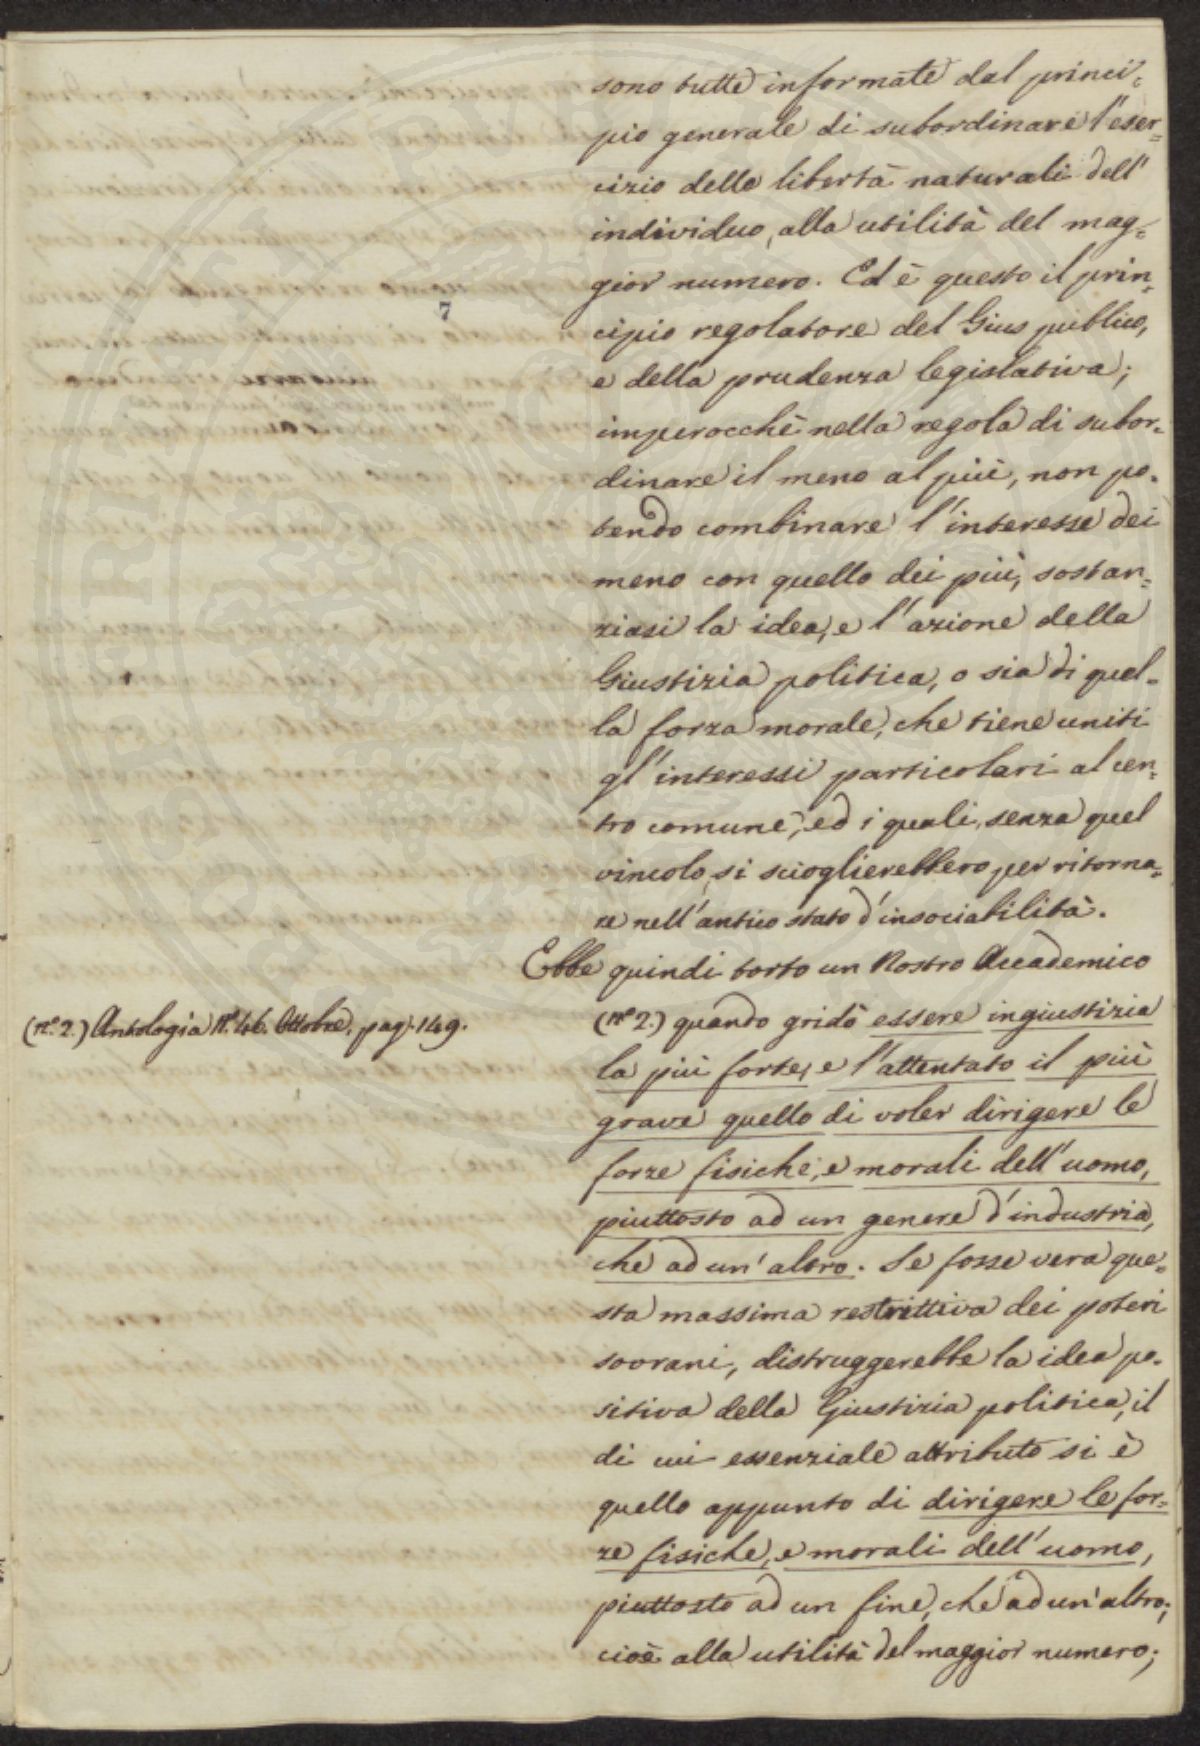 sono tutte informate dal princi-
pio generale di subordinare l'eser=
cizio delle libertà naturali dell'
individuo, alla utilità del mag=
gior numero. Ed è questo il prin=
7
cipio regolatore del Gius publico,
e della prudenza legislativa;
imperocchè nella regola di subor-
dinare il meno al più, non po-
tendo combinare l'interesse dei
meno con quello dei più, sostan=
ziasi la idea, e l'azione della
Giustizia politica, o sia di quel-
la forza morale, che tiene uniti
gl'interessi particolari al cen=
tro comune, ed i quali, senza quel
vincolo, si scioglierebbero per ritorna=
re nell'antico stato d'insociabilità.
Ebbe quindi torto un Nostro Accademico
(n.º 2.) Antologia N.º 46. Ottobre, pag. 149.
(nº 2.) quando gridò essere ingiustizia
la più forte, e l'attentato il più
grave quello di voler dirigere le
forze fisiche, e morali dell'uomo,
piuttosto ad un genere d'industria,
che ad un'altro. Se fosse vera que=
sta massima restrittiva dei poteri
sovrani, distruggerebbe la idea po-
sitiva della Giustizia politica, il
di cui essenziale attributo si è
quello appunto di dirigere le for=
ze fisiche, e morali dell'uomo,
piuttosto ad un fine, che ad un'altro;
cioè alla utilità del maggior numero;